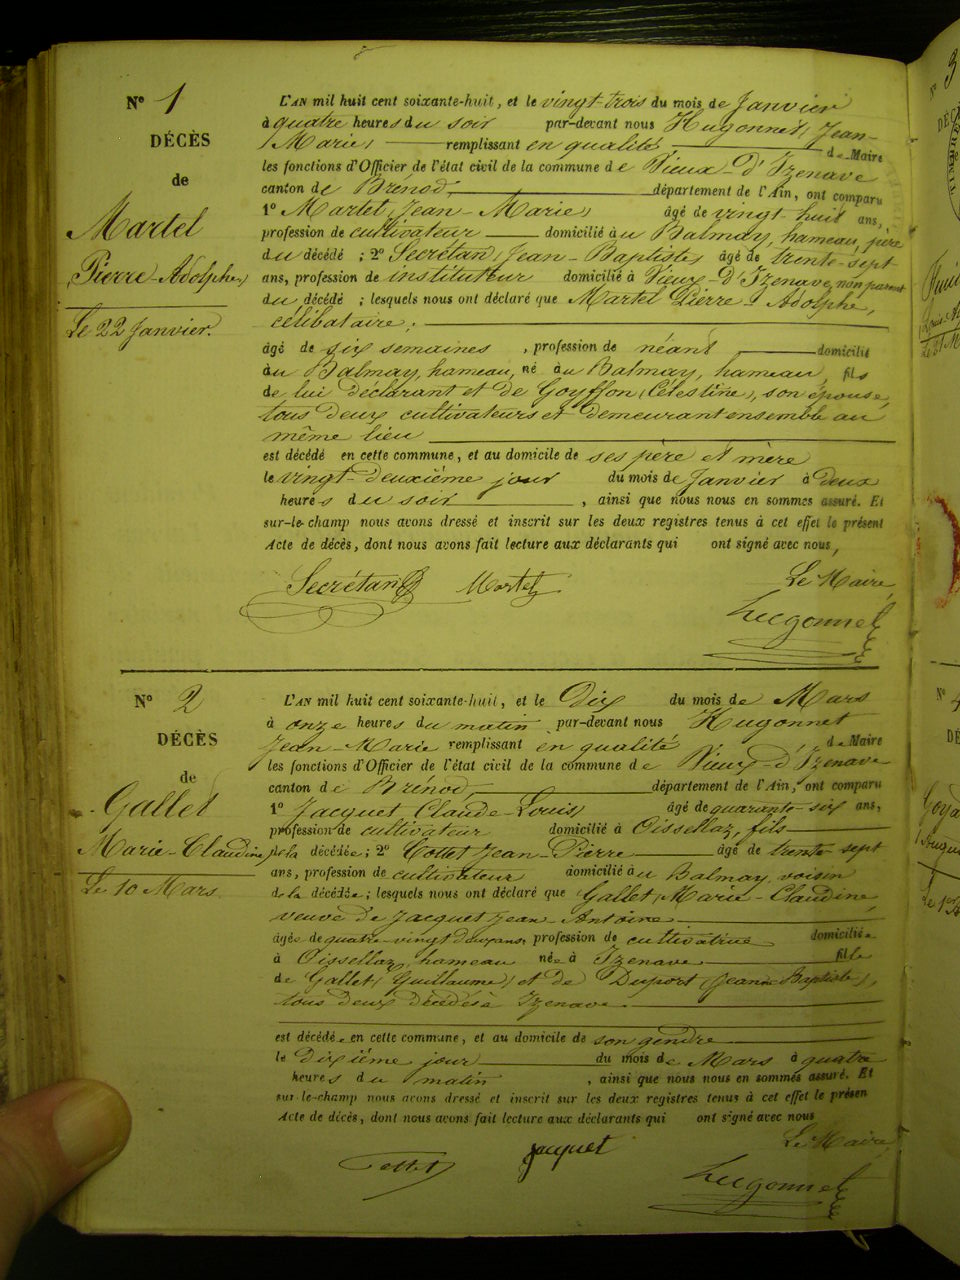 N° 1
DÉCÈS
de
Martel
(Pierre-Adolphe)
Le 22 Janvier.
L'AN mil huit cent soixante-huit, et le vingt-trois du mois de Janvier
à quatre heures du soir par-devant nous Hugonnet (Jean-
Marie) remplissant en qualité de Maire
les fonctions d'Officier de l'état civil de la commune de Vieux-d'Izenave
canton de Brénod, département de l'Ain, ont comparu
1° Martel (Jean-Marie) âgé de vingt-huit ans,
profession de cultivateur domicilié au Balmay, hameau, père
du décédé ; 2° Secrétan (Jean-Baptiste) âgé de trente-sept
ans, profession de instituteur domicilié à Vieux-d'Izenave, non parent
du décédé ; lesquels nous ont déclaré que Martel Pierre-Adolphe,
célibataire,
âgé de six semaines, profession de néant domicilié
au Balmay, hameau, né au Balmay, hameau, fils
de lui déclarant et de Goyffon (Célestine), son épouse,
tous deux cultivateurs et demeurant ensemble au
même lieu
est décédé en cette commune, et au domicile de ses père et mère
le vingt-deuxième jour du mois de Janvier à deux
heures du soir, ainsi que nous nous en sommes assuré. Et
sur-le-champ nous avons dressé et inscrit sur les deux registres tenus à cet effet le présent
Acte de décès, dont nous avons fait lecture aux déclarants qui ont signé avec nous,
Secrétan Martel Le Maire,
Hugonnet
N° 2
DÉCÈS
de
Gallet
Marie-Claudine
Le 10 Mars
L'AN mil huit cent soixante-huit, et le Dix du mois de Mars
à onze heures du matin par-devant nous Hugonnet
Jean-Marie remplissant en qualité de Maire
les fonctions d'Officier de l'état civil de la commune de Vieux-d'Izenave
canton de Brénod, département de l'Ain, ont comparu
1° Jacquet Claude-Louis, âgé de quarante-six ans,
profession de cultivateur domicilié à Oissellaz, fils
de la décédée ; 2° Cottet Jean-Pierre âgé de trente-sept
ans, profession de cultivateur domicilié au Balmay, voisin
de la décédée ; lesquels nous ont déclaré que Gallet, Marie-Claudine,
veuve de Jacquet Jean-Antoine
âgée de quatre-vingt deux ans, profession de cultivatrice domiciliée
à Oissellaz, hameau née à Izenave fille
de Gallet (Guillaume) et de Duport (Jeanne Baptiste),
tous deux décédés à Izenave.
est décédée en cette commune, et au domicile de son gendre
le dixième jour du mois de Mars à quatre
heures du matin, ainsi que nous nous en sommes assuré. Et
sur-le-champ nous avons dressé et inscrit sur les deux registres tenus à cet effet le présen
Acte de décès, dont nous avons fait lecture aux déclarants qui ont signé avec nous
Le Maire,
Cottet Jacquet
Hugonnet